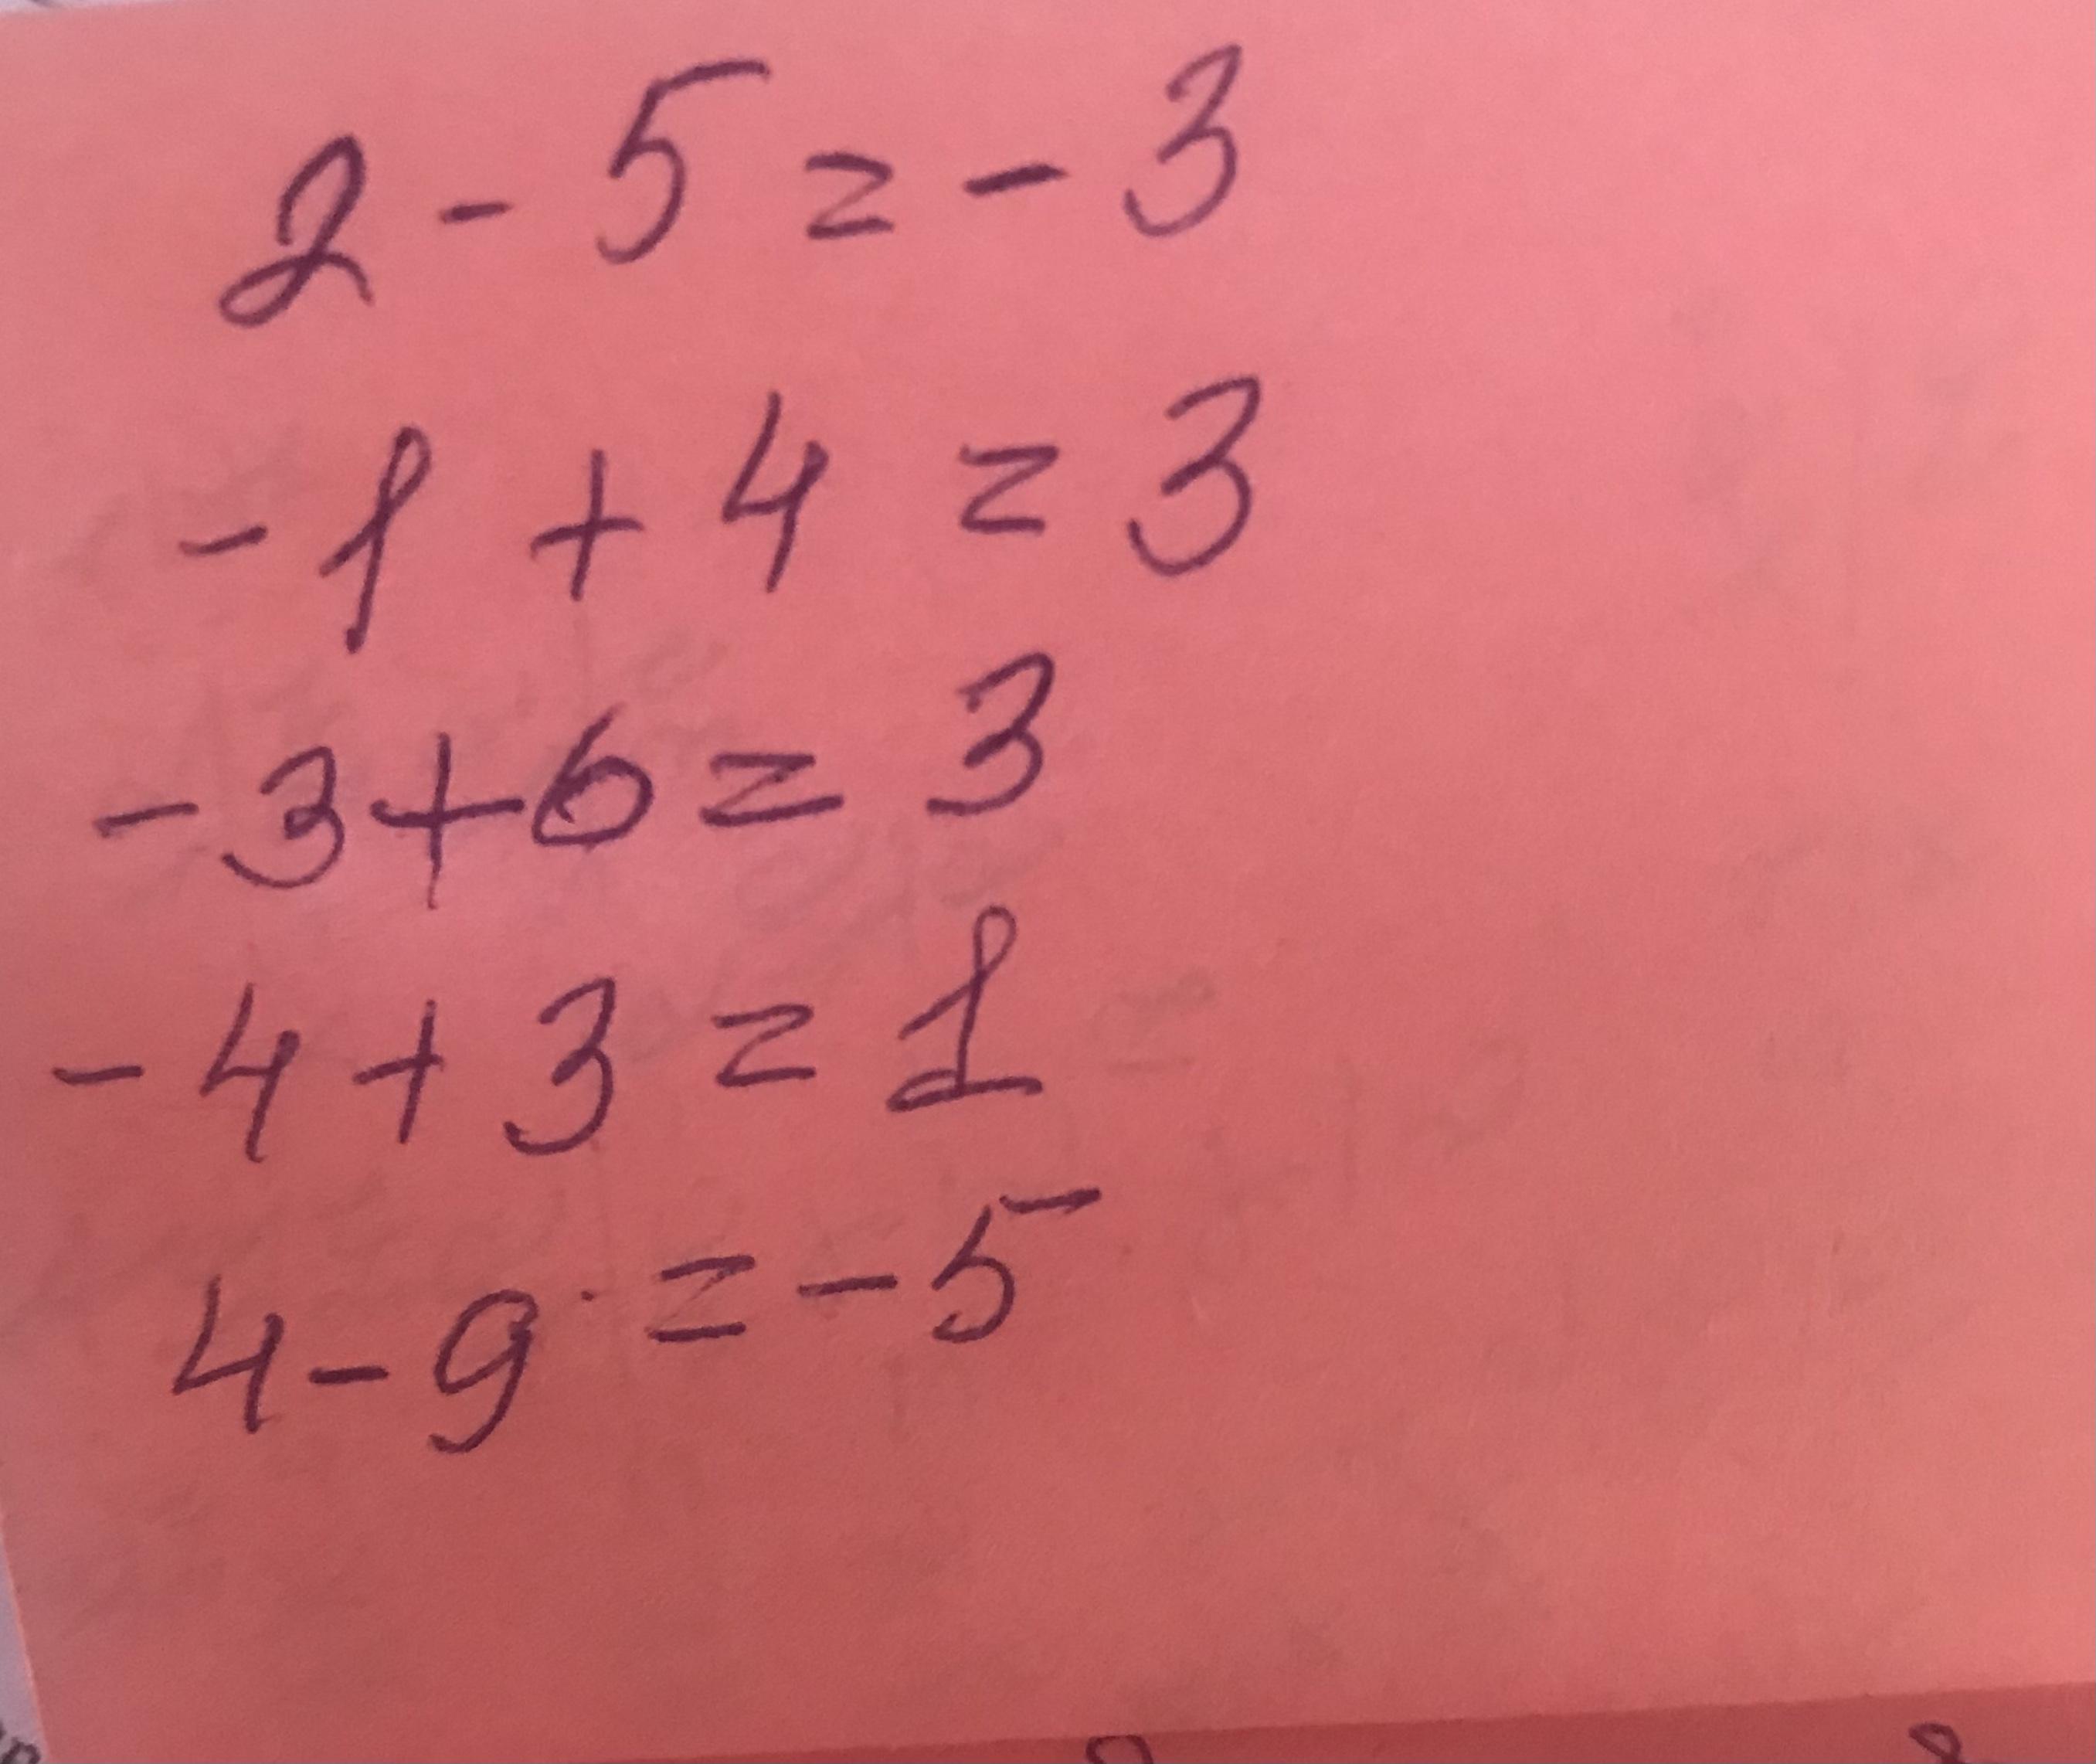 2 - 5 = - 3
- 1 + 4 = 3
- 3 + 6 = 3
- 4 + 3 = 1
4 - 9 = - 5